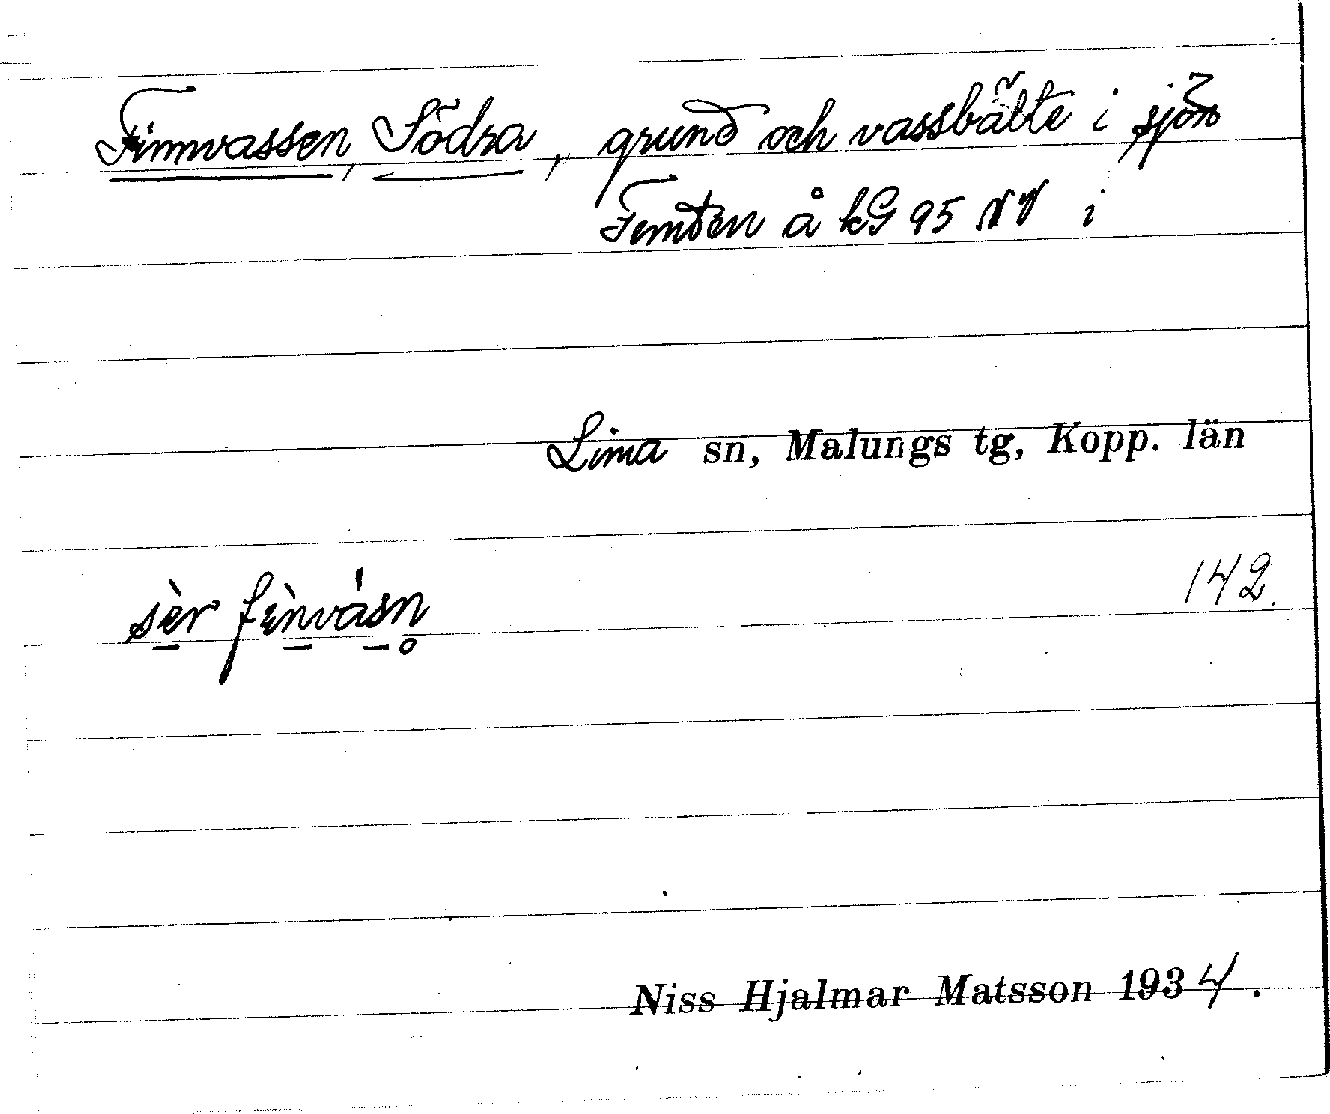 Finnvassen, Södra, grund och vassbälte i sjön
Femten å kG 95 NV i
Lima sn, Malungs tg, Kopp. län
sèr fìnvásn̥
142.
Niss Hjalmar Matsson 1934.